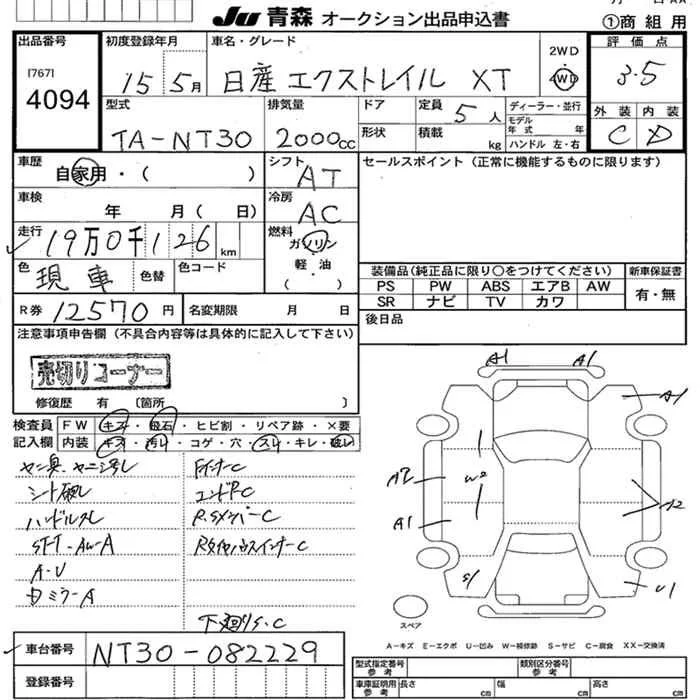 JU 青森 オークション出品申込書
①商組用
出品番号
[767]
4094
初度登録年月
15 5月
車名・グレード
日産 エクストレイル XT
2WD
4WD
評価点
3.5
外装 内装
C D
型式
TA-NT30
排気量
2000cc
ドア
形状
定員 5人
積載 kg
ディーラー・並行
モデル年式 年
ハンドル 左・右
車歴
自家用・( )
シフト
AT
セールスポイント (正常に機能するものに限ります)
車検
年 月( 日)
冷房
AC
走行
19万0千126 km
燃料
ガソリン
軽・油
( )
色
現車
色替
色コード
装備品(純正品に限り〇をつけてください)
新車保証書
PS PW ABS エアB AW
SR ナビ TV カワ
有・無
R券 12570円
名変期限 月 日
後日品
注意事項申告欄 (不具合内容等は具体的に記入して下さい)
売切りコーナー
修復歴 有 〔箇所 〕
検査員記入欄
FW キズ・飛石・ヒビ割・リペア跡・×要
内装 キズ・汚れ・コゲ・穴・スレ・キレ・破レ
ハンドルスレ
A-U
下廻りS.C
A1
A1
A1
A2
A1
W2
S1
U1
スペア
A-キズ E-エクボ U-凹み W-補修跡 S-サビ C-腐食 XX-交換済
車台番号
NT30-082229
登録番号
型式指定番号 参考
類別区分番号 参考
車庫証明用 参考
長さ cm 幅 cm 高さ cm